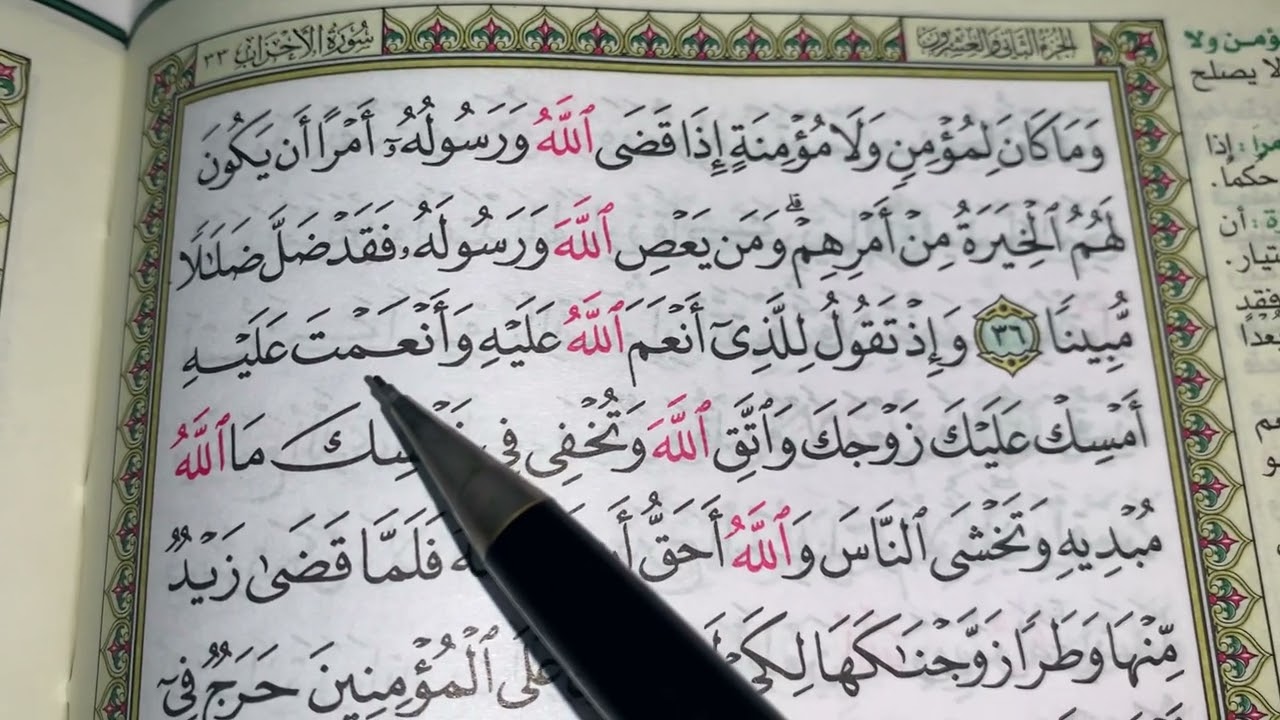 الجزء الثاني والعشرون
سورة الأحزاب ٣٣
وَمَا كَانَ لِمُؤْمِنٍ وَلَا مُؤْمِنَةٍ إِذَا قَضَى ٱللَّهُ وَرَسُولُهُۥٓ أَمْرًا أَن يَكُونَ
لَهُمُ ٱلْخِيَرَةُ مِنْ أَمْرِهِمْ ۗ وَمَن يَعْصِ ٱللَّهَ وَرَسُولَهُۥ فَقَدْ ضَلَّ ضَلَـٰلًا
مُّبِينًا ٣٦ وَإِذْ تَقُولُ لِلَّذِىٓ أَنْعَمَ ٱللَّهُ عَلَيْهِ وَأَنْعَمْتَ عَلَيْهِ
أَمْسِكْ عَلَيْكَ زَوْجَكَ وَٱتَّقِ ٱللَّهَ وَتُخْفِى فِى مَا ٱللَّهُ
مُبْدِيهِ وَتَخْشَى ٱلنَّاسَ وَٱللَّهُ أَحَقُّ فَلَمَّا قَضَىٰ زَيْدٌ
مِّنْهَا وَطَرًا زَوَّجْنَـٰكَهَا عَلَى ٱلْمُؤْمِنِينَ حَرَجٌ فِىٓ
ؤمن ولا
لا يصلح
مرا : إذا
حكما.
رة : أن
تيار.
فقد